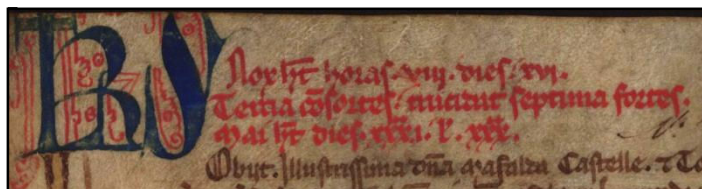 KL
Nox ht horas · viii · dies · xvi ·
Tercia cõsortes · trucidat septima fortes ·
Mai ht dies · xxxi · l · xxx ·
Obijt · Illustrissima dña Mafalda Castelle · ⁊ To